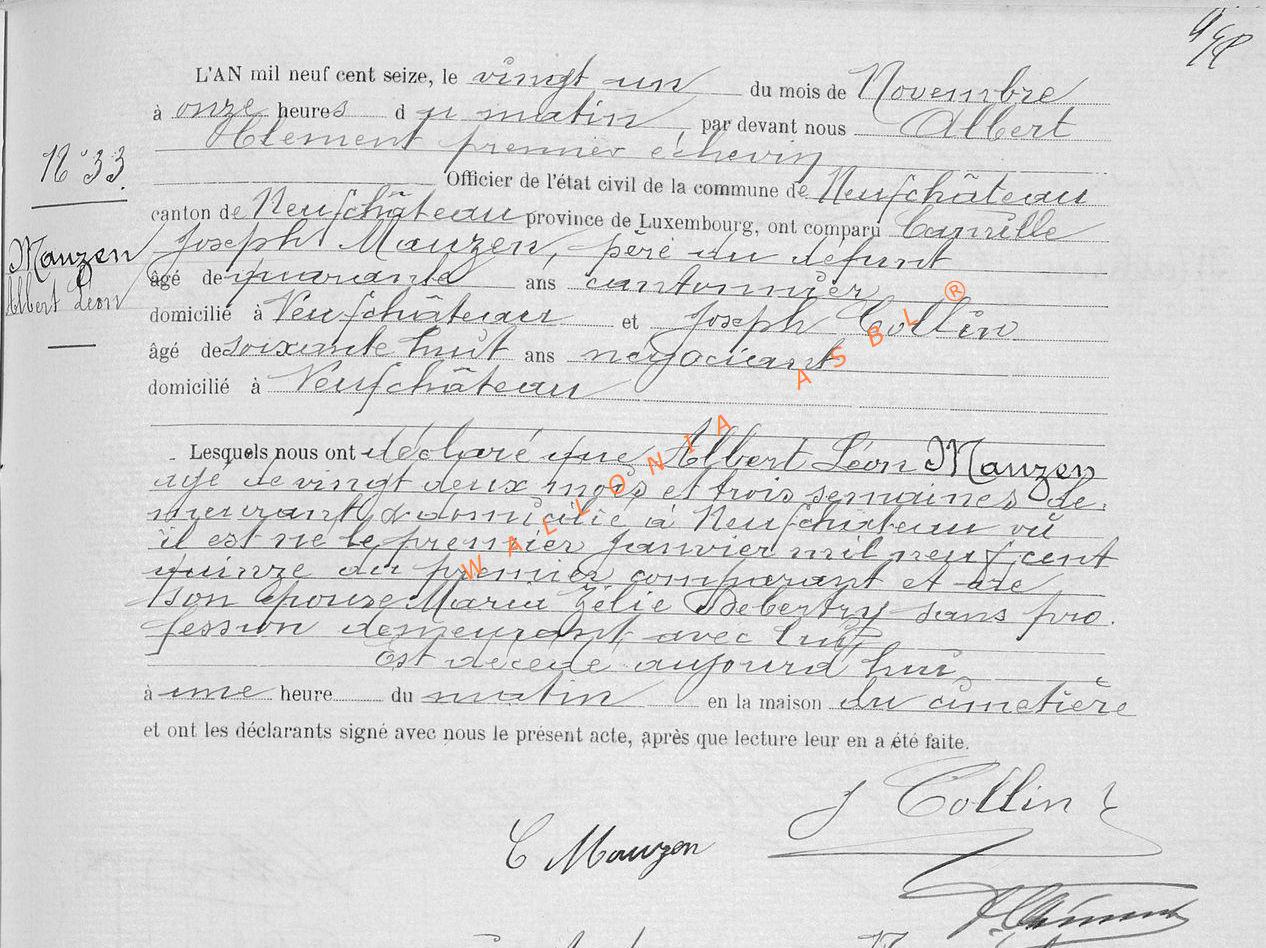 L'AN mil neuf cent seize, le vingt un du mois de Novembre
à onze heures du matin, par devant nous Albert
Clement premier échevin
N° 33.
Officier de l'état civil de la commune de Neufchâteau
canton de Neufchâteau province de Luxembourg, ont comparu Camille
Mauzen
Albert Léon
Joseph Mauzen, père du défunt
âgé de quarante ans cantonnier
domicilié à Neufchâteau et Joseph Collin
âgé de soixante huit ans négociant
domicilié à Neufchâteau
Lesquels nous ont déclaré que Albert Léon Mauzen
agé de vingt deux mois et trois semaines de-
meurant & domicilié à Neufchâteau où
il est né le premier Janvier mil neuf cent
quinze du premier comparant et de
son épouse Maria Zélie Debertry sans pro-
fession demeurant avec lui,
Est décédé aujourd'hui
à une heure du matin en la maison du cimetière
et ont les déclarants signé avec nous le présent acte, après que lecture leur en a été faite.
J Collin
C Mauzen
AClément
WALLONIA ASBL ®